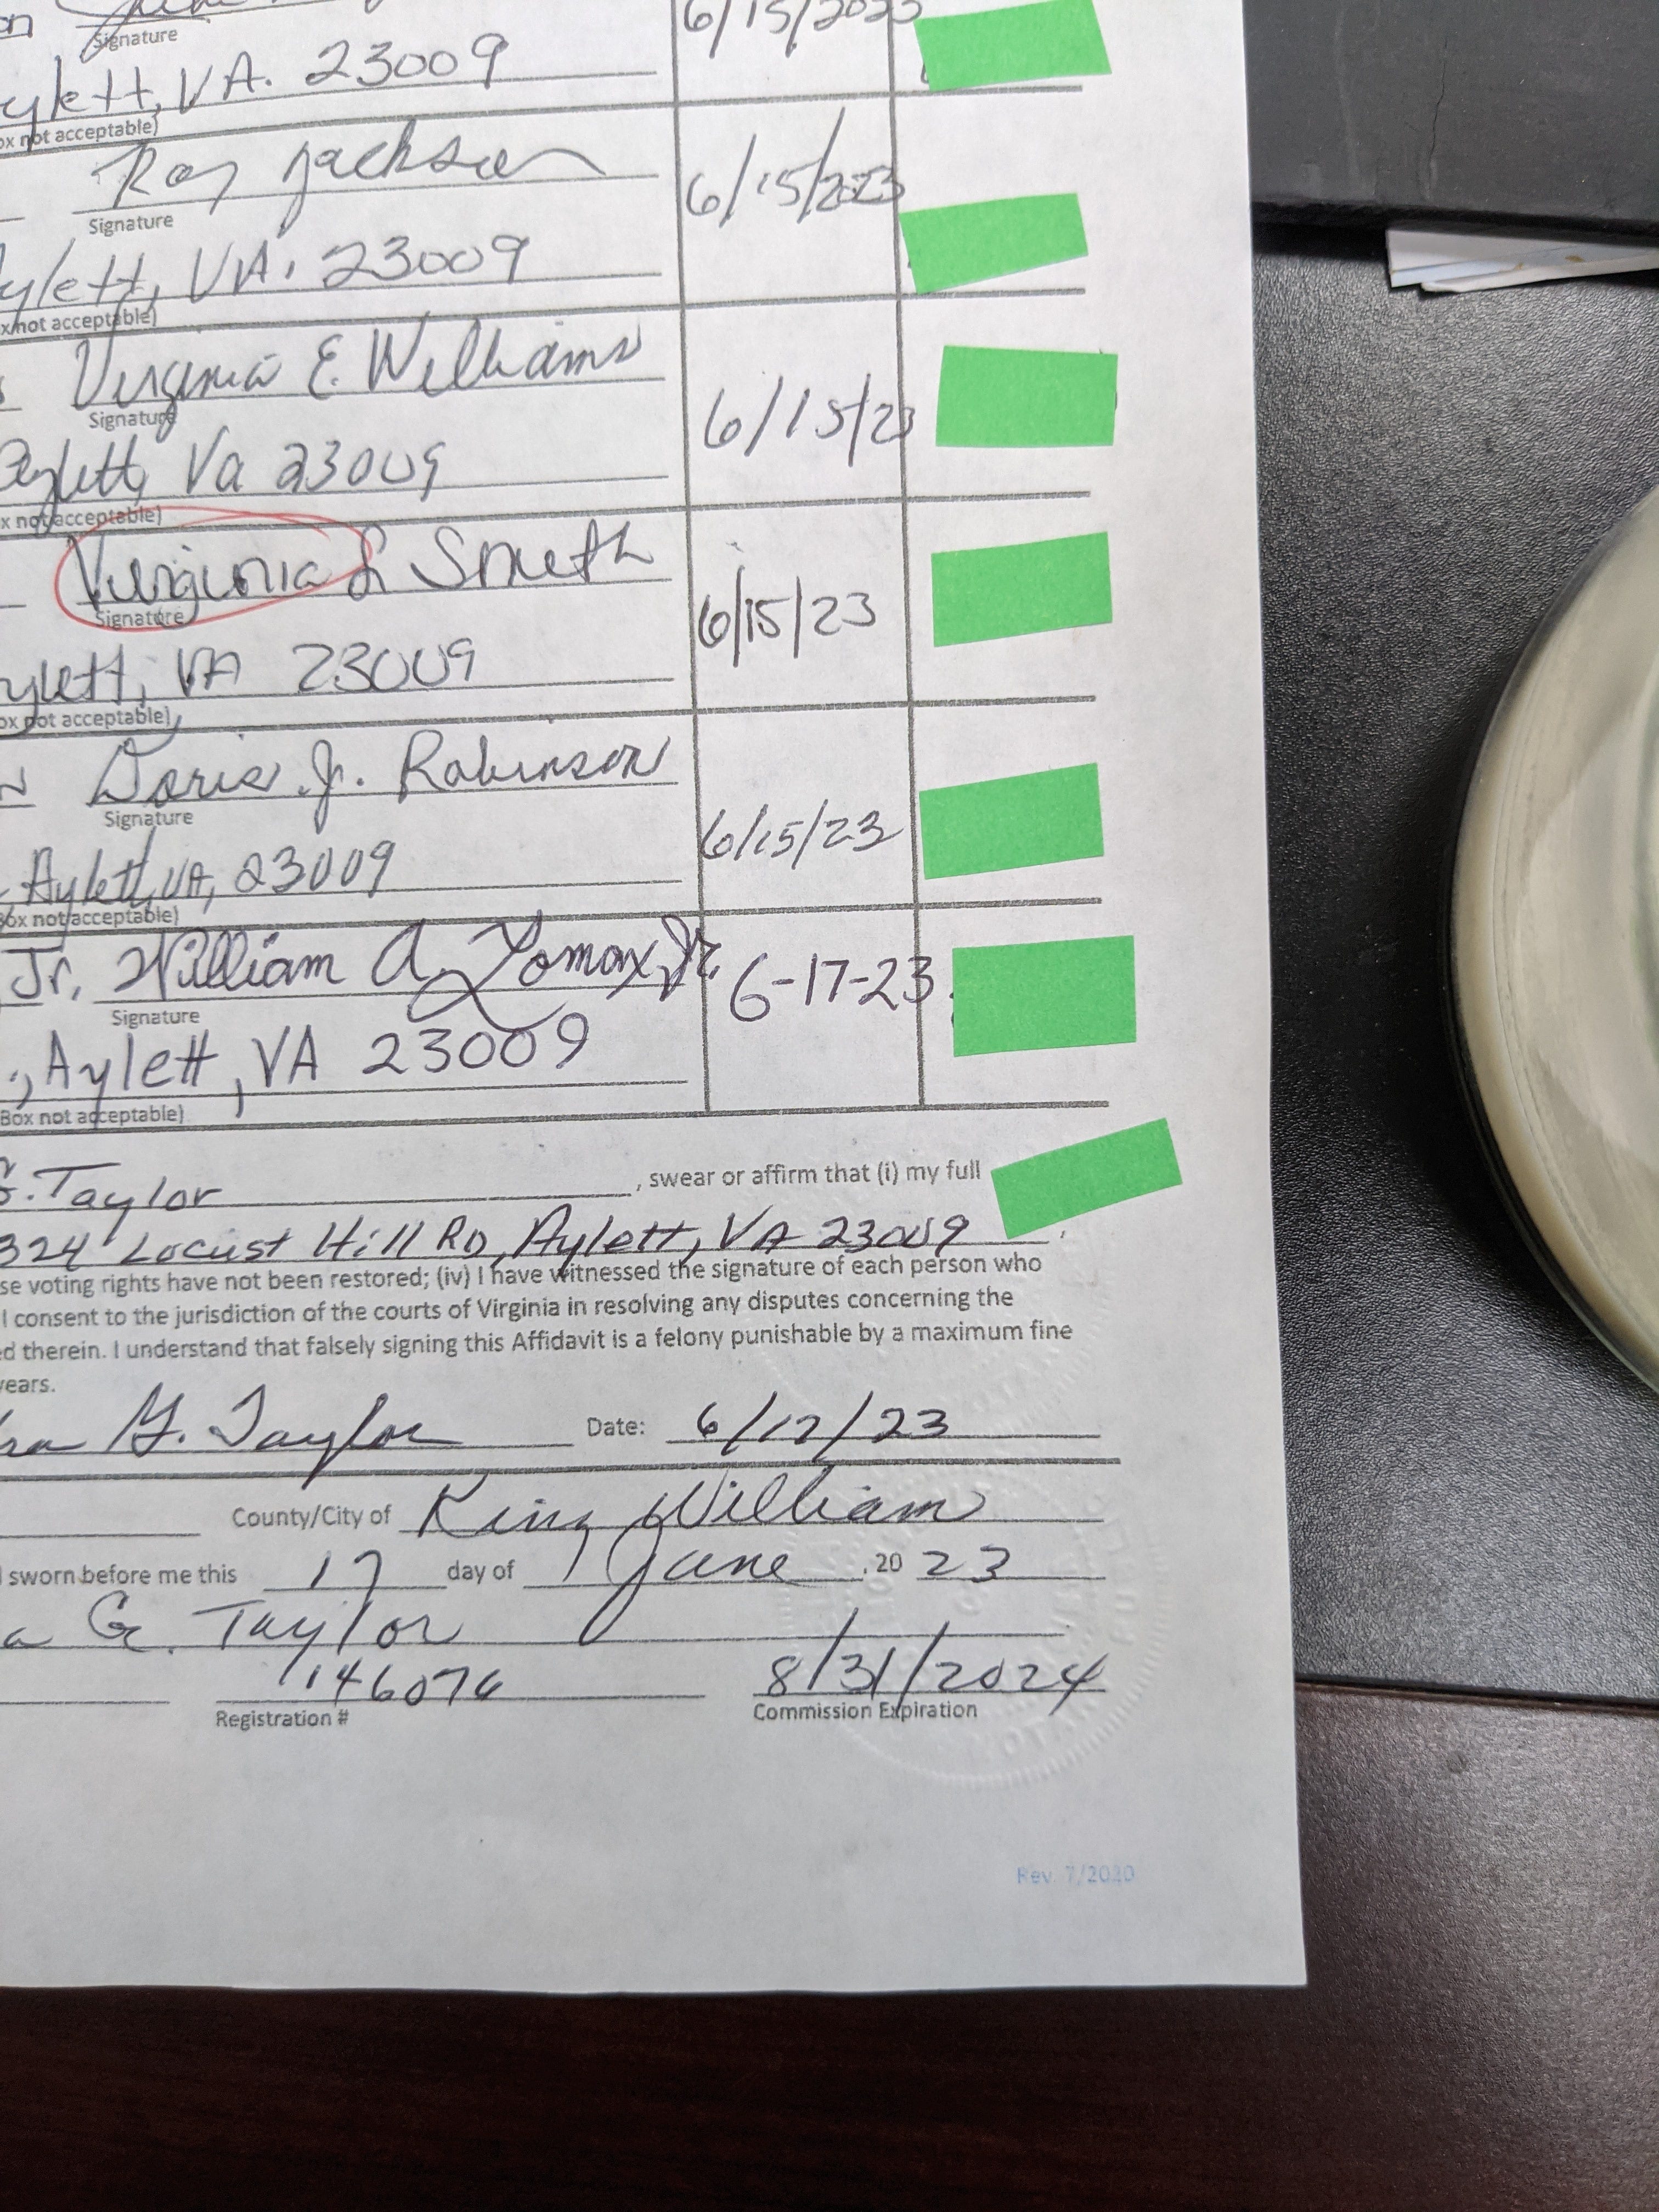 Signature 6/15/2023
ylett, VA. 23009
ox not acceptable)
Roy Jackson 6/15/2023
Signature
ylett, VA. 23009
x not acceptable)
Virginia E. Williams
Signature 6/15/23
Aylett, Va 23009
x not acceptable)
Virginia L Smith
Signature 6/15/23
ylett, VA 23009
ox not acceptable)
Doris J. Robinson
Signature 6/15/23
, Aylett, VA, 23009
Box not acceptable)
Jr. William A. Lomax, Jr. 6-17-23
Signature
., Aylett, VA 23009
Box not acceptable)
G. Taylor , swear or affirm that (i) my full
324 Locust Hill RD, Aylett, VA 23009
se voting rights have not been restored; (iv) I have witnessed the signature of each person who
I consent to the jurisdiction of the courts of Virginia in resolving any disputes concerning the
ed therein. I understand that falsely signing this Affidavit is a felony punishable by a maximum fine
years.
ra G. Taylor Date: 6/17/23
County/City of King William
sworn before me this 17 day of June , 20 23
a G. Taylor
7146076 8/31/2024
Registration # Commission Expiration
Rev. 7/2020